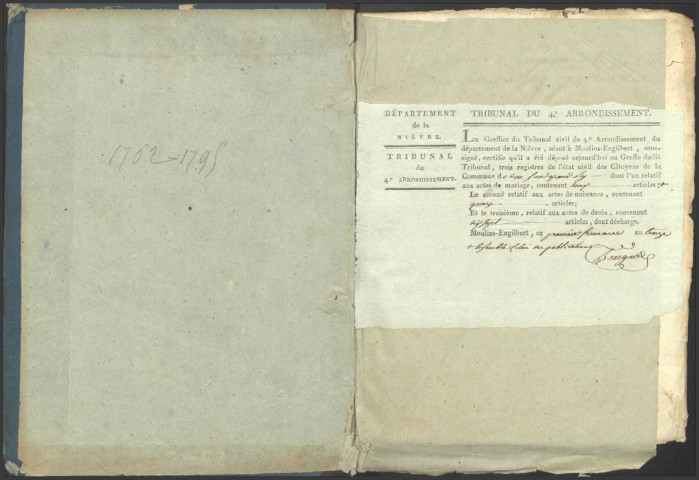 1762-1795
DÉPARTEMENT
de la
NIÈVRE.
TRIBUNAL
du
4.e ARRONDISSEMENT.
TRIBUNAL DU 4.e ARRONDISSEMENT.
LE Greffier du Tribunal civil du 4.e Arrondissement du
département de la Nièvre, séant à Moulins-Engilbert, sous-
signé, certifie qu'il a été déposé cejourd'hui au Greffe dudit
Tribunal, trois registres de l'état civil des Citoyens de la
Commune de dont l'un relatif
aux actes de mariage, contenant articles;
Le second relatif aux actes de naissance, contenant
articles;
Et le troisième, relatif aux actes de décès, contenant
articles, dont décharge.
Moulins-Engilbert, ce premier frimaire an treize